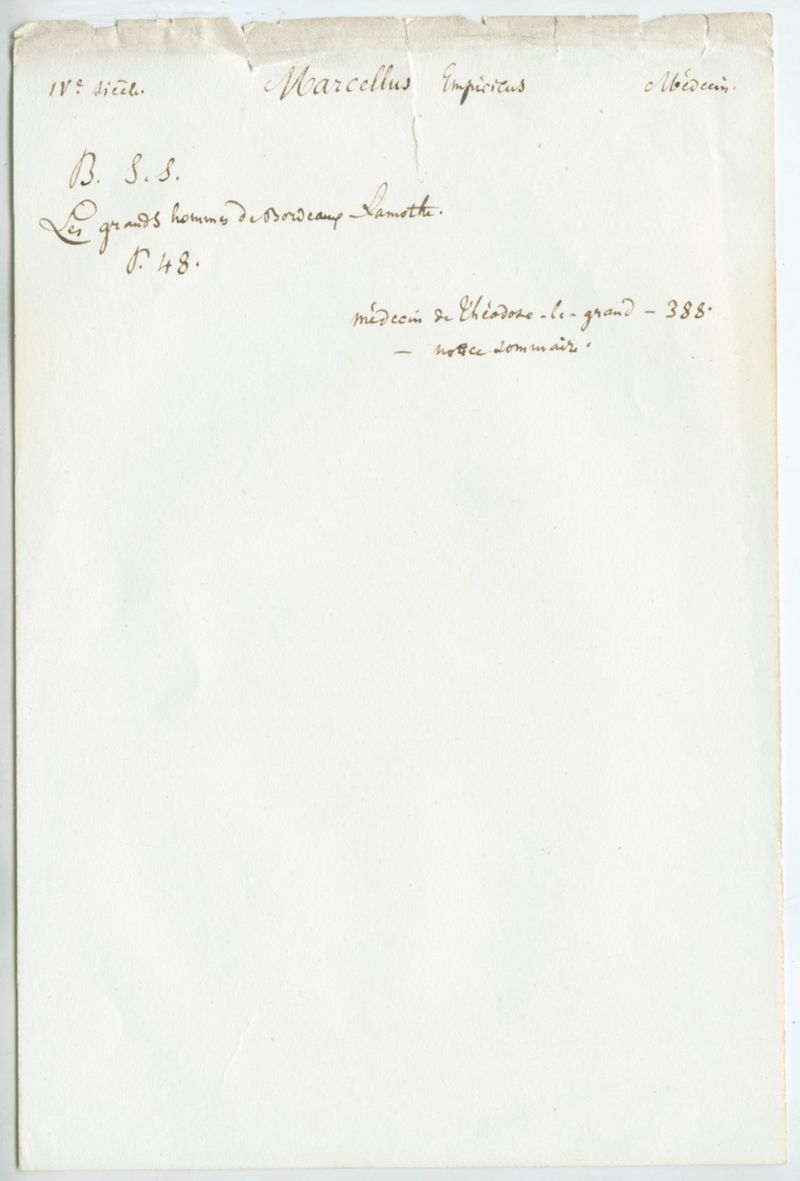 IVe siècle. Marcellus Empiricus Médecin.
B. S. S.
Les grands hommes de Bordeaux - Lamothe.
P. 48.
médecin de Théodose-le-grand - 388.
- notice sommaire.